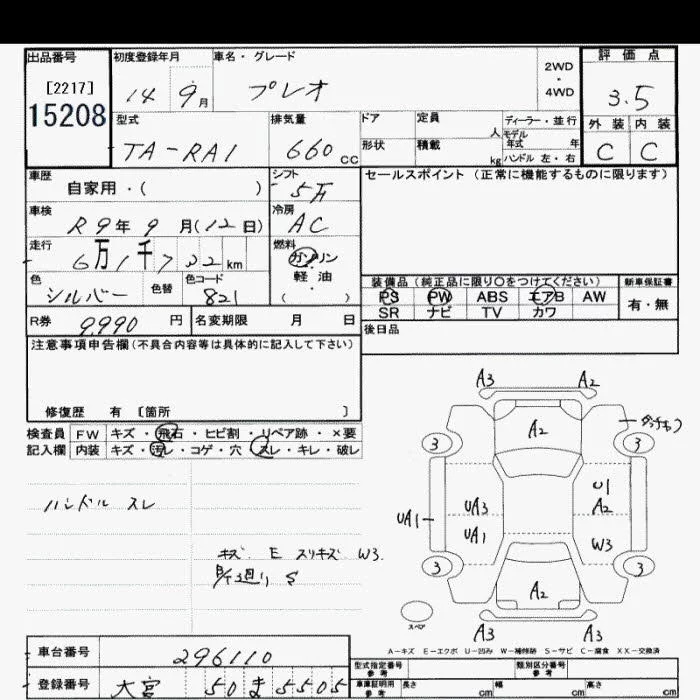 出品番号 初度登録年月 車名・グレード 2WD・4WD 評価点
[2217] 14 9月 プレオ 3.5
15208 型式 排気量 ドア 定員 人 ディーラー・並行 外装 内装
TA-RA1 660cc 形状 積載 kg モデル年式 年 C C
ハンドル 左・右
車歴 自家用・( ) シフト 5F セールスポイント(正常に機能するものに限ります)
車検 R9年9月(12日) 冷房 AC
走行 6万1千722km 燃料 ガソリン・軽・油 ( )
色 シルバー 色替 色コード 821 装備品(純正品に限り○をつけてください) 新車保証書
PS PW ABS エアB AW 有・無
SR ナビ TV カワ
R券 9,990円 名変期限 月 日 後日品
注意事項申告欄(不具合内容等は具体的に記入して下さい)
修復歴 有 〔箇所 〕
検査員 FW キズ・飛石・ヒビ割・リペア跡・×要
記入欄 内装 キズ・汚レ・コゲ・穴・スレ・キレ・破レ
ハンドル スレ
キズ E スリキズ W3.
S
A3 A2
A2 タッチカフ
3 3
U1
UA3 A2
UA1 UA1 W3
3 3
A2
スペア A3 A3
A-キズ E-エクボ U-凹み W-補修跡 S-サビ C-腐食 XX-交換済
車台番号 296110 型式指定番号 参考 類別区分番号 参考
登録番号 大宮 50ま5505 車庫証明用 参考 長さ cm 幅 cm 高さ cm